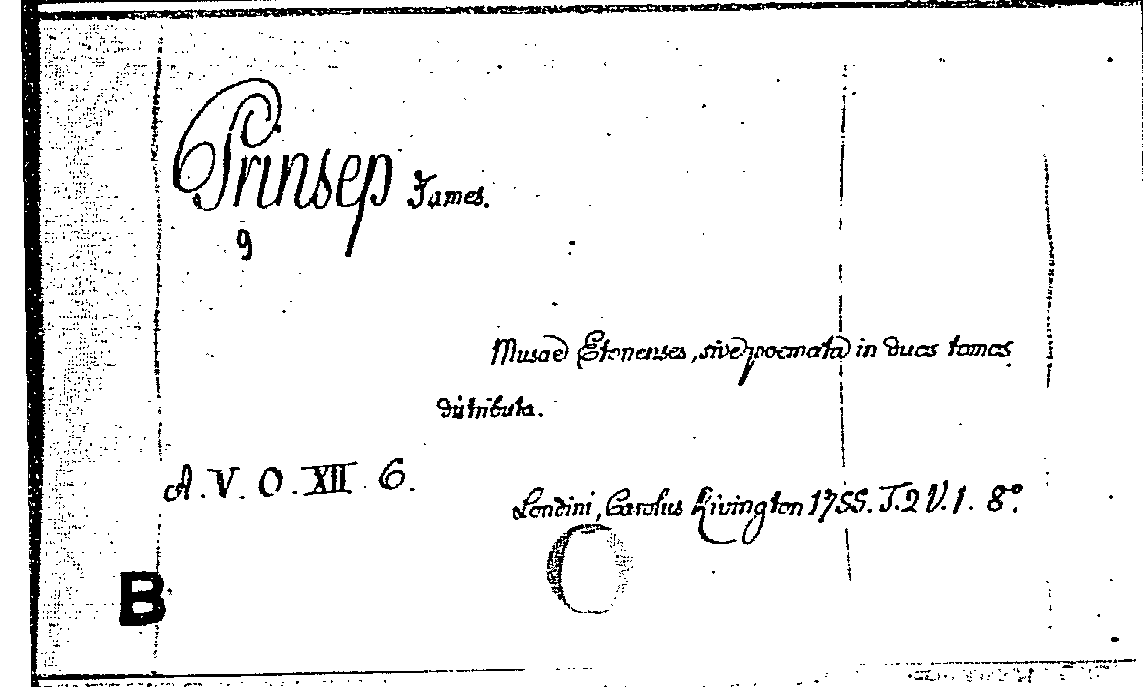 Prinsep James.
9
Musae Etonenses, sive poemata in duos tomos
distributa.
A.V.O.XII 6.
Londini, Carolus Rivington 1755. T.2 V.1. 8°.
B